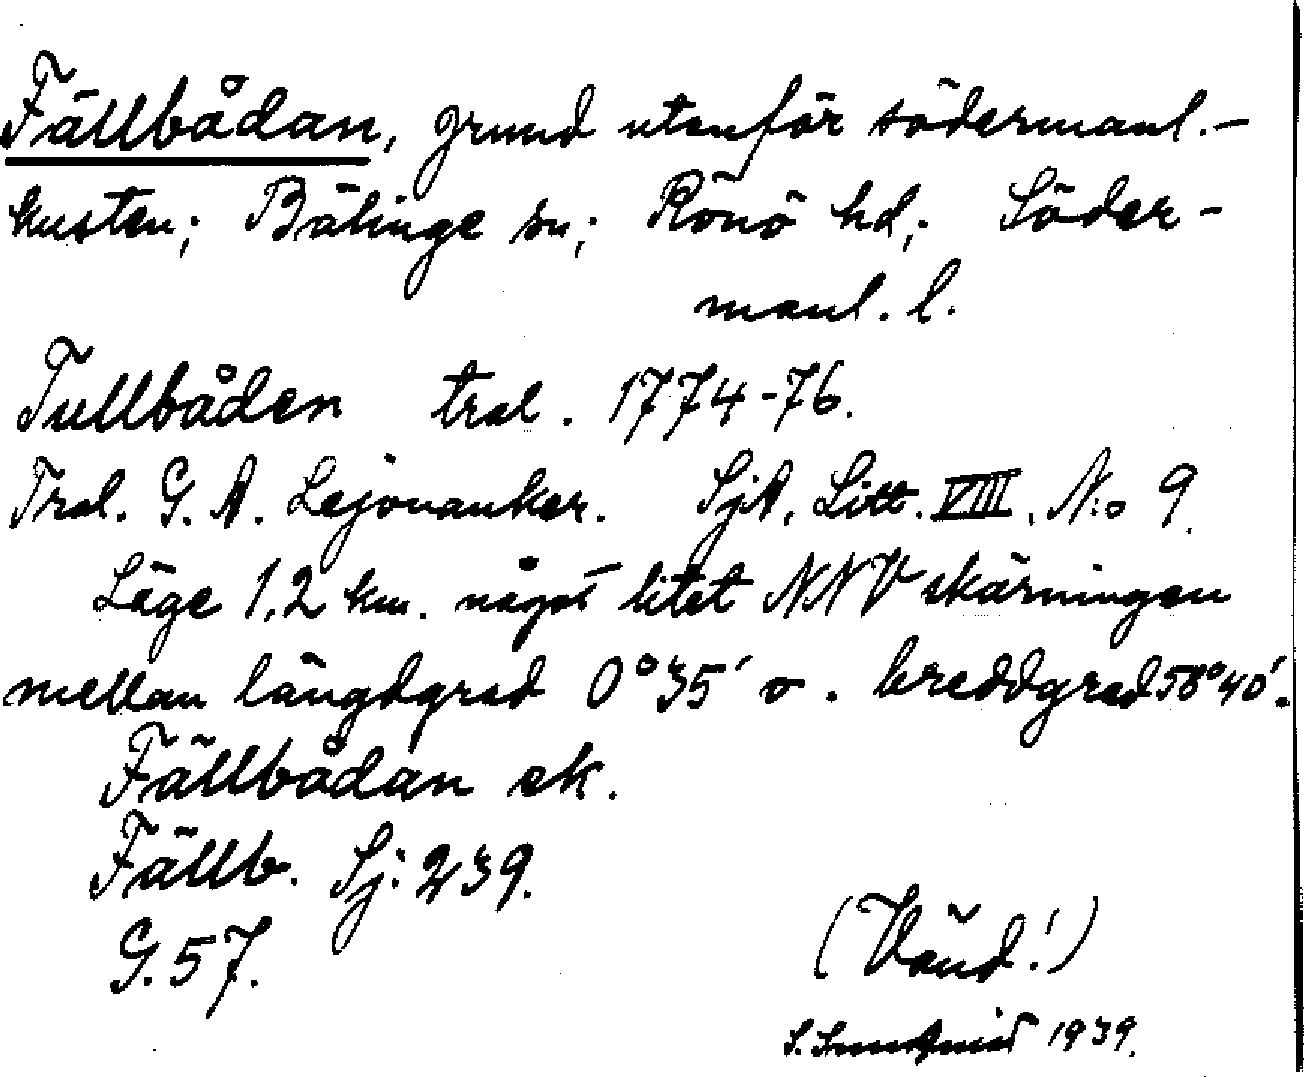 Fällbådan, grund utanför södermanl.-
kusten; Bälinge sn; Rönö hd; Söder-
manl. l.
Tullbåden tral. 1774-76.
Tral. G. A. Lejonanker. SjA. Litt. VIII. N:o 9.
Läge 1,2 km. något litet NNV skärningen
mellan längdgrad 0°35′ o. breddgrad 58°40′.
Fällbådan ek.
Fällb. Sj: 239.
G. 57.
(Vänd!)
S. 1939.